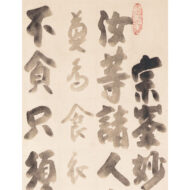 宗峯妙
汝等諸人
莫為食
不貪只須